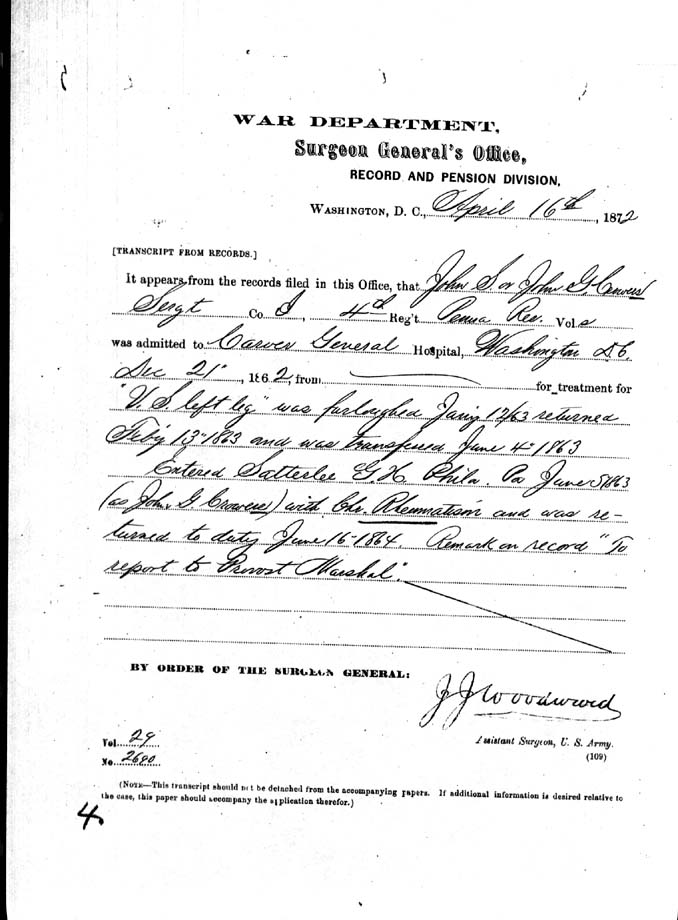 WAR DEPARTMENT,
Surgeon General's Office,
RECORD AND PENSION DIVISION,
WASHINGTON, D. C., April 16th, 1872
[TRANSCRIPT FROM RECORDS.]
It appears from the records filed in this Office, that John S. or John G.
Sergt Co. 4th Reg't. Penna Res. Vols
was admitted to Carver General Hospital, Washington D.C.
Dec 21", 1862, from for treatment for
"V. S. left leg" was furloughed Jan'y 12/63 returned
Feb'y 13" 1863 and was transfered June 4" 1863
Entered Satterlee G. H. Phila. Pa June 5 1863
(as John G. Crowers) with Chr. Rheumatism and was re-
turned to duty June 16-1864. Remark on record "To
report to Provost Marshal".
BY ORDER OF THE SURGEON GENERAL:
J J Woodward
Assistant Surgeon, U. S. Army.
Vol. 29
(109)
No. 2690
(NOTE—This transcript should not be detached from the accompanying papers. If additional information is desired relative to
the case, this paper should accompany the application therefor.)
4.